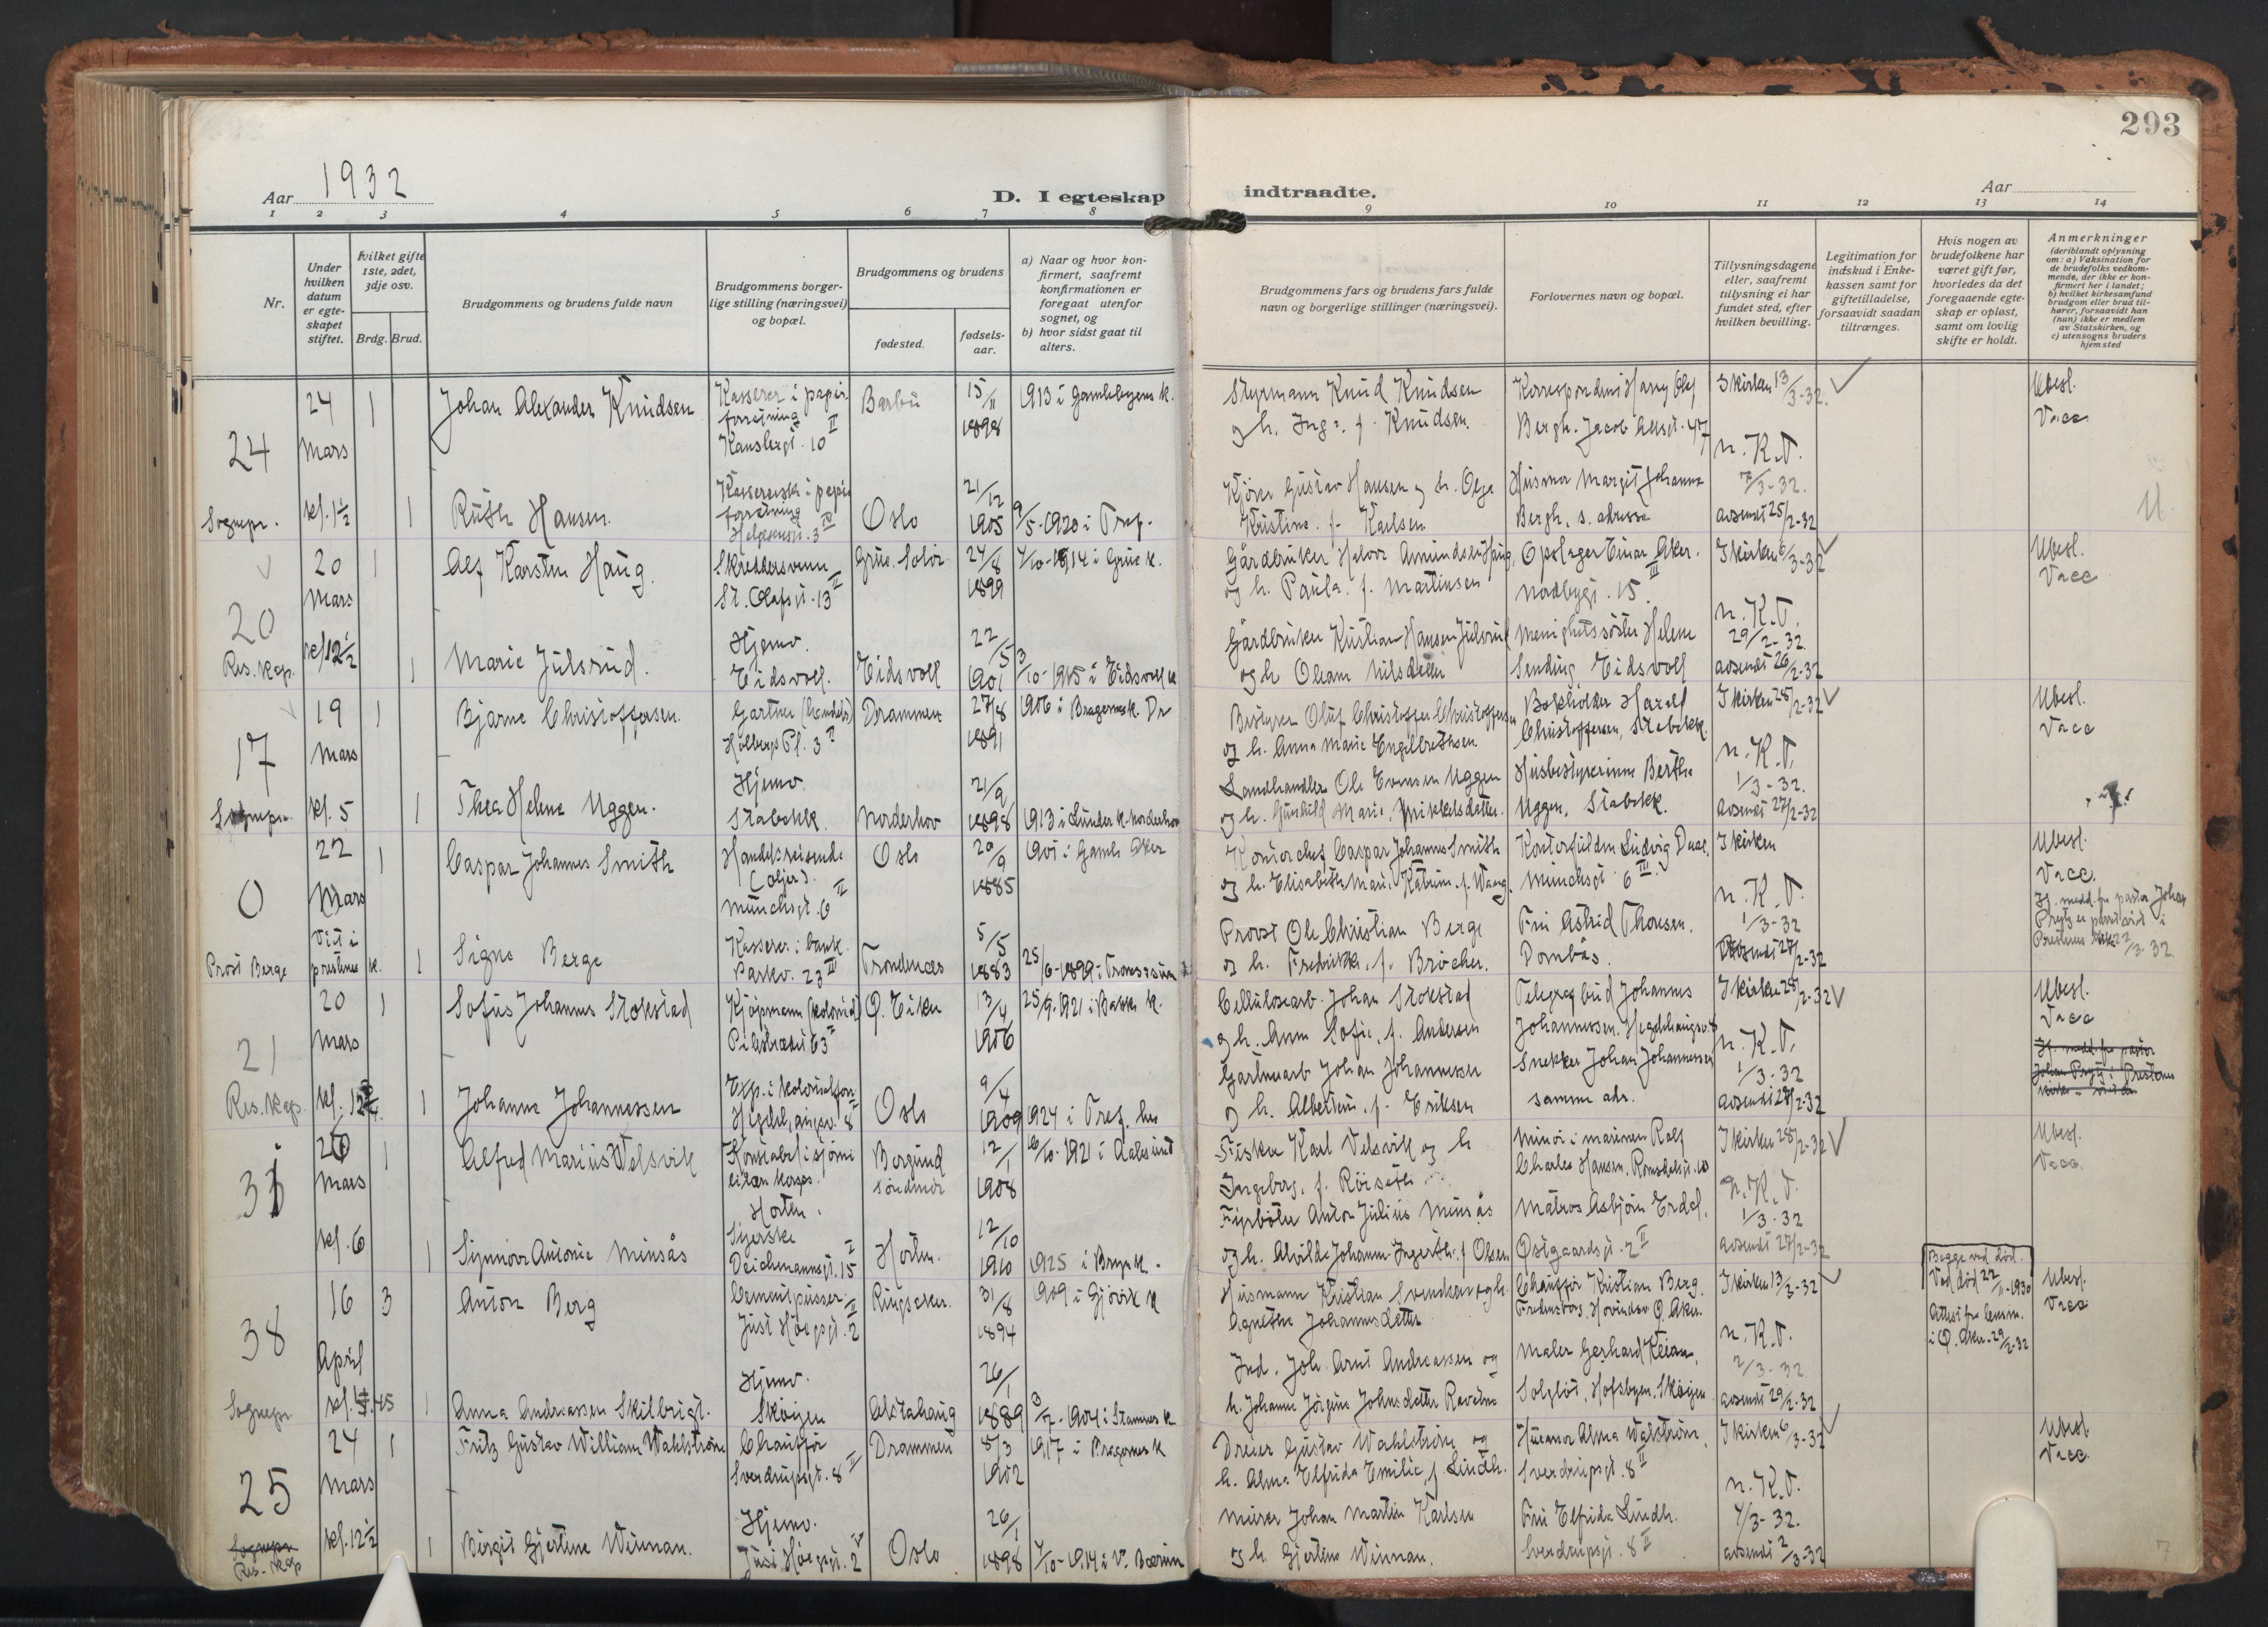 293
Aar 1932
D. I egteskap indtraadte.
Aar
1 2 3 4 5 6 7 8 9 10 11 12 13 14
Nr.
Under hvilken datum er egteskapet stiftet.
Hvilket gifte 1ste, 2det, 3dje osv.
Brdg. Brud.
Brudgommens og brudens fulde navn
Brudgommens borgerlige stilling (næringsvei) og bopæl.
Brudgommens og brudens
fødested.
fødselsaar.
a) Naar og hvor konfirmert, saafremt konfirmationen er foregaat utenfor sognet, og
b) hvor sidst gaat til alters.
Brudgommens fars og brudens fars fulde navn og borgerlige stillinger (næringsvei).
Forlovernes navn og bopæl.
Tillysningsdagene eller, saafremt tillysning ei har fundet sted, efter hvilken bevilling.
Legitimation for indskud i Enkekassen samt for giftetilladelse, forsaavidt saadan tiltrænges.
Hvis nogen av brudefolkene har været gift før, hvorledes da det foregaaende egteskap er opløst, samt om lovlig skifte er holdt.
Anmerkninger
(deriblandt oplysning om: a) Vaksination for de brudefolks vedkommende, der ikke er konfirmert her i landet;
b) hvilket kirkesamfund brudgom eller brud tilhører, forsaavidt han (hun) ikke er medlem av Statskirken, og
c) utensogns bruders hjemsted
24
24 Mars kl. 1½
Sognepr.
1 Johan Alexander Knudsen
Kasserer i papirforretning
10 II
Barbu
15/11 1898
1913 i Gamlebyens k.
Styrmann Knud Knudsen
og h. f. Knudsen.
Bergh. Jacob Allsgt. 47
I kirken 13/3-32.
Ubesl.
Vacc
1 Ruth Hansen
forretning
Oslo
21/12 1905
9/5-1920 i Tref.
Kjører Gustav Hansen og h. Olga
Kristine f. Karlsen
Husmor Margit Johanne
Bergh, s. adresse
n. K.T.
7/3-32.
avsendt 25/2-32
20
20 Mars kl 12½
Res. kap.
1 Alf Karsten Haug.
Skreddersvenn
St. Olafsgt. 13 II
Grue. Solør
24/8 1899
4/10-1914 i Grue k.
Gårdbruker Halvor Amundsen Haug,
og h. Paula f. Martinsen
Opslager Einar Aker.
Nordbygt. 15 III
I kirken 6/3-32
Ubesl.
Vacc
1 Marie Julsrud.
Hjemv.
Eidsvoll.
Eidsvoll
22/5 1901
3/10-1915 i Eidsvoll k
Gårdbruker Kristian Hansen Julsrud
og h Oliane Nilsdatter
Menighetssøster Helene
Sending Eidsvoll
n. K.T.
29/2-32.
avsendt 26/2-32
17
19 Mars kl. 5
Sognepr.
1 Bjarne Christoffersen.
Gartner (handels)
Holbergs Pl. 3 II
Drammen
27/8 1891
1906 i Bragernes k. Dr
Bestyrer Oluf Christoffer Christoffersen
og h. Anna Marie Engelbrethsen
Bokholder Harald
Christoffersen, Stabekk.
I kirken 28/2-32
Ubesl.
Vacc
1 Thea Helene Uggen.
Hjemv.
Stabekk.
Norderhov
21/9 1898
1913 i Lunder k. Norderhov
Landhandler Ole Evensen Uggen
og h. Gunhild Marie Mikkelsdatter.
Husbestyrerinne Berthe
Uggen, Stabekk.
n. K.T.
1/3-32.
avsendt 27/2-32
0
22 Mars
Viet i prestenes k.
Prost Berge
1 Caspar Johannes Smith
Handelsreisende
(oljer).
Munchsgt. 6 II
Oslo
20/9 1885
1901 i Gamle Aker
Kontorchef Caspar Johannes Smith
og h. Elisabeth Marie Katrine f. Waag.
Munchsgt 6 III.
I kirken
Ubesl.
Vacc.
1 Signe Berge
Kasserer i bank.
Parkv. 23 III
Trondenes
5/5 1883
25/6-1899 i Tromsøsun
Provst Ole Christian Berge
og h. Fredrikke f. Brøcher.
Fru Astrid Thonsen.
Dombås.
n. K.T.
1/3-32
avsendt 27/2-32
Ifl. medd. fra pastor Johan
21
20 Mars kl. 12¾
Res. kap.
1 Sofus Johannes Stokstad
Kjøpmann (kolonial)
Pilestredet 63 II
Ø. Eiker
13/4 1906
25/9-1921 i Bakke k.
Cellulosearb. Johan Stokstad
og h. Anne Sofie f. Andersen
Telegrafbud Johannes
Johannessen. Hegdehaugsv. 8
I kirken 28/2-32
Ubesl.
Vacc
1 Johanne Johannessen
Exp. i kolonialforr.
Hegdehaugsv. 8 II
Oslo
9/4 1909
1924 i Tref. her
Gartnerarb Johan Johannessen
og h. Albertine f. Eriksen
Snekker Johan Johannessen
samme adr.
n. K.T.
1/3-32
avsendt 27/2-32
31
20 Mars kl. 6
1 Alfred Marius Velsvik
Konstabel i sjømilitær korps.
Horten.
Borgund
Søndmør
12/1 1908
10-1921 i Aalesund
Fisker Karl Velsvik og h
Ingeborg, f. Røiseth
Minør i marinen Rolf
Charles Hansen, Romsdalsgt. 10
I kirken 28/2-32
Ubesl.
Vacc.
1 Synnøve Antonie Minsås
Syerske
Deichmannsgt. 15 I
Horten.
12/10 1910
1925 i Bryn k.
Fyrbøter Anton Julius Minsås
og h. Alvilde Johanne Ingerthe f Olsen
Matros Asbjørn Erdal,
Østgaardsgt. 2 II
n. K.T.
1/3-32
avsendt 27/2-32
38
16 April kl. 5.45
Sognepr
3 Anton Berg
Cementpusser.
Just Høegsgt. 2 II
Ringsaker.
31/8 1894
1909 i Gjøvik k
Husmann Kristian Svendsen og h.
Agnethe Johannesdatter
Chauffør Kristian Berg.
Fredensborg Hovindsv Ø. Aker.
I kirken 13/3-32
Begge ved død.
Ved død 22/11-1930
Attest fra lensm.
i Ø. Aker 29/2-32
Ubesl.
Vacc
1 Anna Andreassen Skilbrigt.
Hjemv.
Skøyen
Alstahaug
26/1 1889
3/7-1904 i Stamnes k
Ind. Joh. Arnt Andreassen og
h. Johanne Jørgine Johnsdatter
Maler Gerhard Keian,
Solgløt, Hofsbyen, Skøyen
n. K.T.
2/3-32
avsendt 29/2-32
25
24 Mars kl. 12½
Sognepr
Res. kap
1 Fritz Gustav William Wahlstrøm
Chauffør
Sverdrupsgt. 8 II
Drammen
8/3 1902
1917 i Bragernes k
Dreier Gustav Wahlstrøm og
h. Alma Elfrida Emilie f. Lindh.
Alma Wahlstrøm,
Sverdrupsgt. 8 II
I kirken 6/3-32
Ubesl.
Vacc.
1 Birgit Gjertine Winnan.
Hjemv.
Just Høegsgt. 2 II
Oslo
26/1 1898
4/10-1914 i V. Bærum
Murer Johan Martin Karlsen
og h. Gjertine Winnan.
Fru Elfrida Lindh.
Sverdrupsgt. 8 II
n. K.T.
4/3-32.
avsendt 2/3-32